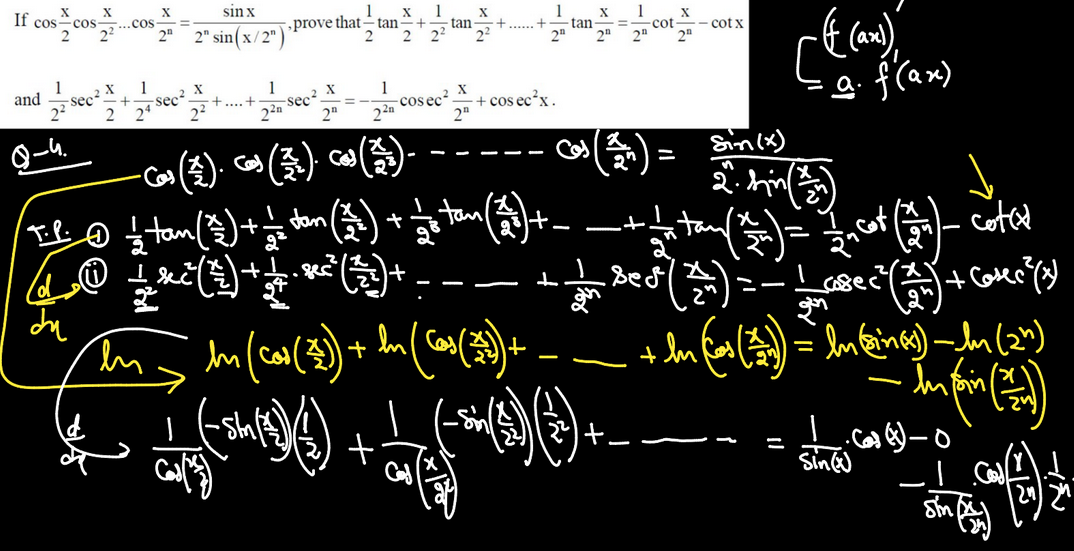 If cos x/2 cos x/2² ...cos x/2ⁿ = sin x / 2ⁿ sin(x/2ⁿ), prove that 1/2 tan x/2 + 1/2² tan x/2² + ...... + 1/2ⁿ tan x/2ⁿ = 1/2ⁿ cot x/2ⁿ − cot x
and 1/2² sec² x/2 + 1/2⁴ sec² x/2² + .... + 1/2²ⁿ sec² x/2ⁿ = − 1/2²ⁿ cosec² x/2ⁿ + cosec² x .
(f(ax))'
= a. f'(ax)
Q-4.
cos(x/2). cos(x/2²). cos(x/2³). - - - - - - cos(x/2ⁿ) = sin(x) / 2ⁿ. sin(x/2ⁿ)
T.P. (i) 1/2 tan(x/2) + 1/2² tan(x/2²) + 1/2³ tan(x/2³) + - — + 1/2ⁿ tan(x/2ⁿ) = 1/2ⁿ cot(x/2ⁿ) − cot(x)
(ii) 1/2² sec²(x/2) + 1/2⁴. sec²(x/2²) + - - — - + 1/2²ⁿ sec²(x/2ⁿ) = − 1/2²ⁿ cosec²(x/2ⁿ) + cosec²(x)
d/dx
ln → ln(cos(x/2)) + ln(cos(x/2²)) + - — + ln(cos(x/2ⁿ)) = ln(sin(x)) − ln(2ⁿ)
− ln(sin(x/2ⁿ))
d/dx → 1/cos(x/2) (−sin(x/2))(1/2) + 1/cos(x/2²) (−sin(x/2²))(1/2²) + - — - - = 1/sin(x) . cos(x) − 0
− 1/sin(x/2ⁿ) . cos(x/2ⁿ) . 1/2ⁿ